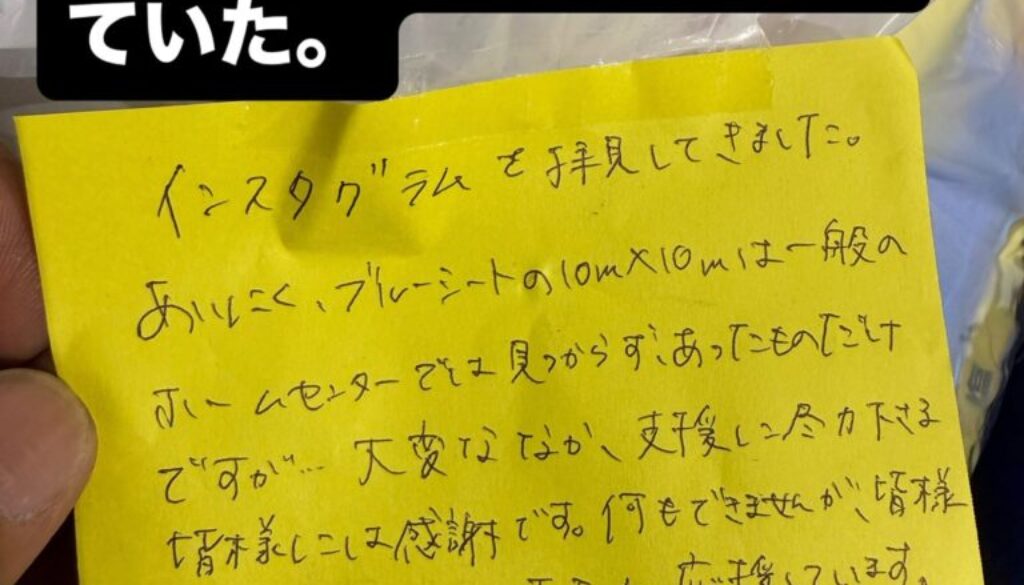 ていた。
インスタグラムを拝見してきました。
あいにく、ブルーシートの10m×10mは一般の
ホームセンターでは見つからず、あったものだけ
ですが… 大変ななか、支援に尽力下さる
皆様には感謝です。何もできませんが、皆様
応援しています。